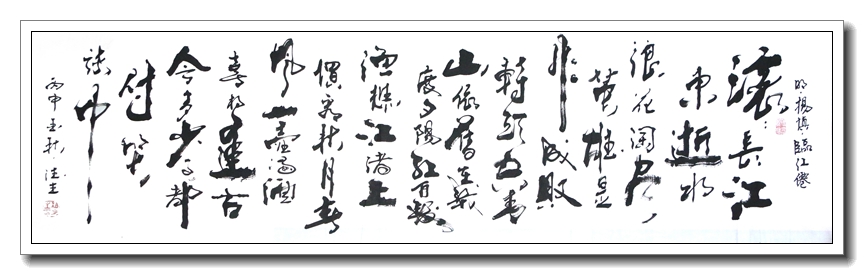 明楊慎臨江僊
滚〻長江
東逝水
浪花淘尽
英雄是
非成敗
轉頭空青
山依舊在幾
度夕陽紅白髮
漁樵江渚上
慣看秋月春
風一壺濁酒
喜相逢古
今多少事都
付笑
談中
丙申孟秋